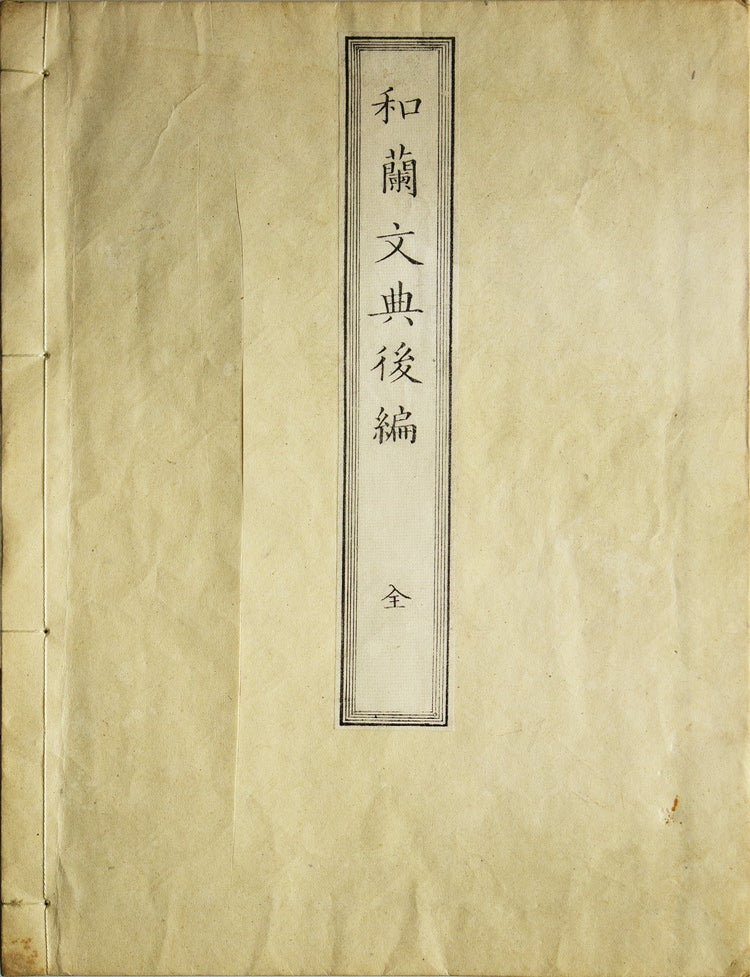 和蘭文典後編
全